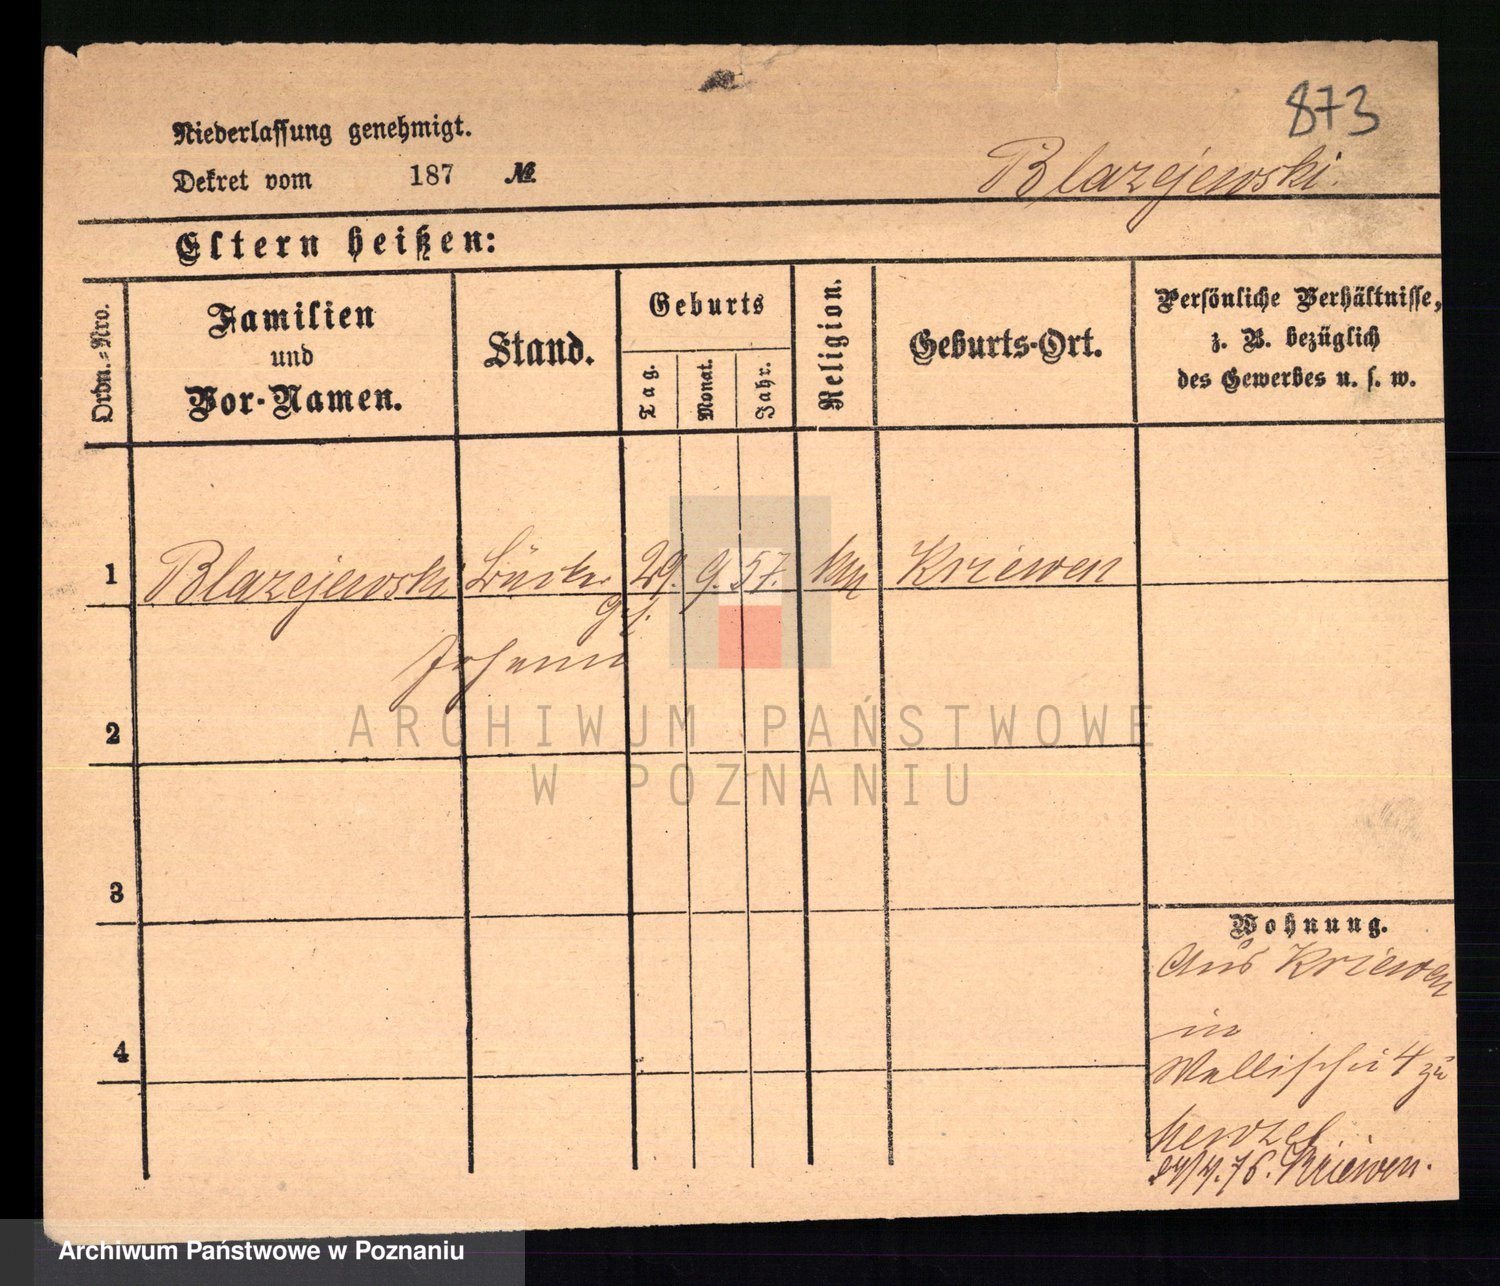 873
Niederlassung genehmigt.
Dekret vom 187 №
Blazejewski.
Eltern heißen:
Ordn.=Nro.
Familien
und
Vor-Namen.
Stand.
Geburts
Tag.
Monat.
Jahr.
Religion.
Geburts-Ort.
Persönliche Verhältnisse,
z. B. bezüglich
des Gewerbes u. s. w.
1 Blazejewski 29. 9. 57. Kriewen
Johann
2
3
4
Wohnung.
Aus Kriewen
in
Wallischei 4 zu
76. Kriewen.
ARCHIWUM PAŃSTWOWE
W POZNANIU
Archiwum Państwowe w Poznaniu